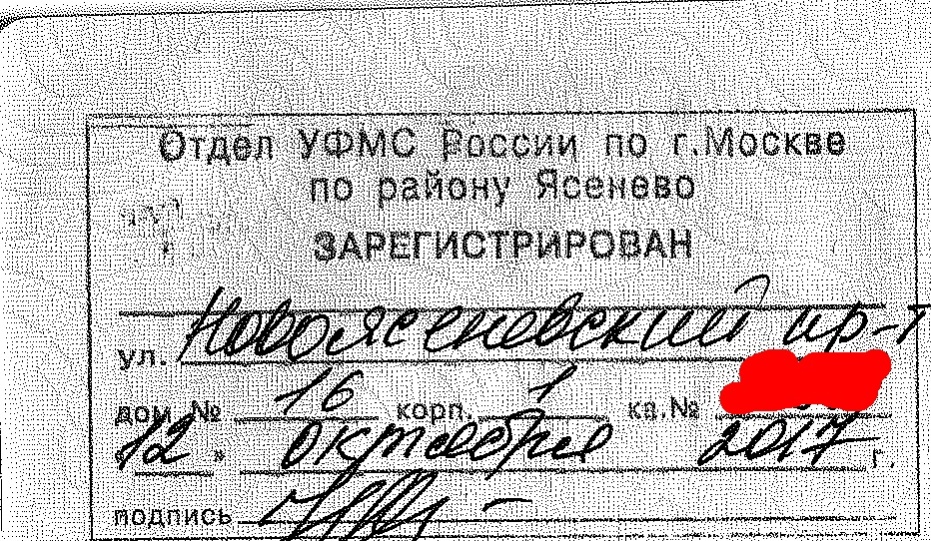 Отдел УФМС России по г.Москве
по району Ясенево
ЗАРЕГИСТРИРОВАН
ул. Новоясеневский пр-т
дом № 16 корп. 1 кв.№
12 " октября 2017 г.
подпись